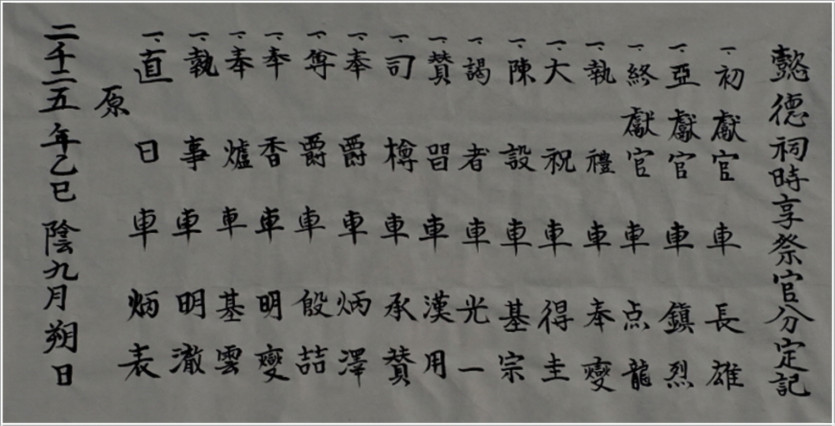 懿德祠時享祭官分定記
一、初獻官 車長雄
一、亞獻官 車鎭烈
一、終獻官 車点龍
一、執禮 車奉燮
一、大祝 車得圭
一、陳設 車基宗
一、謁者 車光一
一、贊唱 車漢用
一、司樽 車承贊
一、奉爵 車炳澤
一、奠爵 車殷喆
一、奉香 車明燮
一、奉爐 車基雲
一、執事 車明澈
一、直日 車炳表
原
二千二五年乙巳 陰九月 朔日